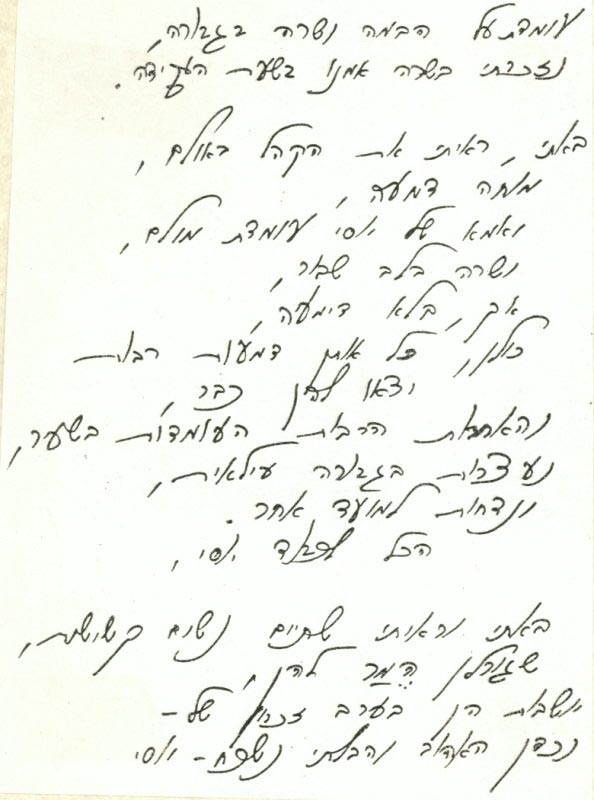 עומדת על הבמה ושרה בגבורה,
נזכרתי בשרה אמנו בשעת העקידה.
באתי, ראיתי את הקהל באולם,
מוחה דמעה,
ואמא של יוסי עומדת מולם,
ושרה בלב שבור,
אך, בלא דימעה,
כולן, כל אותן דמעות רבות
יצאו להן כבר,
והאחרות הרבות העומדות בשער,
נעצרות בגבורה עילאית,
ונדחות למועד אחר.
הכל לכבוד יוסי,
באתי וראיתי שתיים נשים קשישות,
שגורלן המר להן,
יושבות הן בערב זכרון של -
נכדן האהוב והבלתי נשכח - יוסי